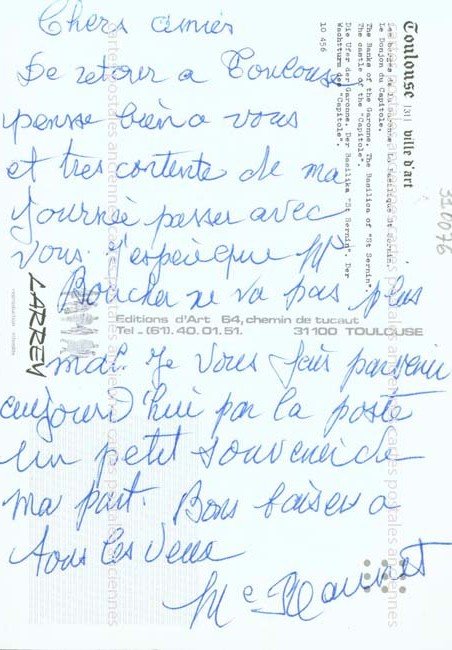 Chers amies
De retour a Toulouse
pense bien a vous
et tres contente de ma
journée passer avec
vous. j'espère que Mr
Boucher ne va pas plus
mal. je vous fais parvenir
aujourd'hui par la poste
un petit souvenir de
ma part. Bons baisers a
tous les deux
Toulouse (31) ville d'art
Les berges de la Garonne. La Basilique St Sernin.
Le Donjon du Capitole.
The Banks of the Garonne. The Basilica of "St Sernin".
The castle of the "Capitole".
Die Ufer der Garonne. Der Basilika "St Sernin". Der
Wachtturm des "Capitole".
10 456
310076
LARREY
reproduction interdite
Editions d'Art 64, chemin de tucaut
Tel. (61). 40. 01. 51. 31100 TOULOUSE
cartes postales anciennes